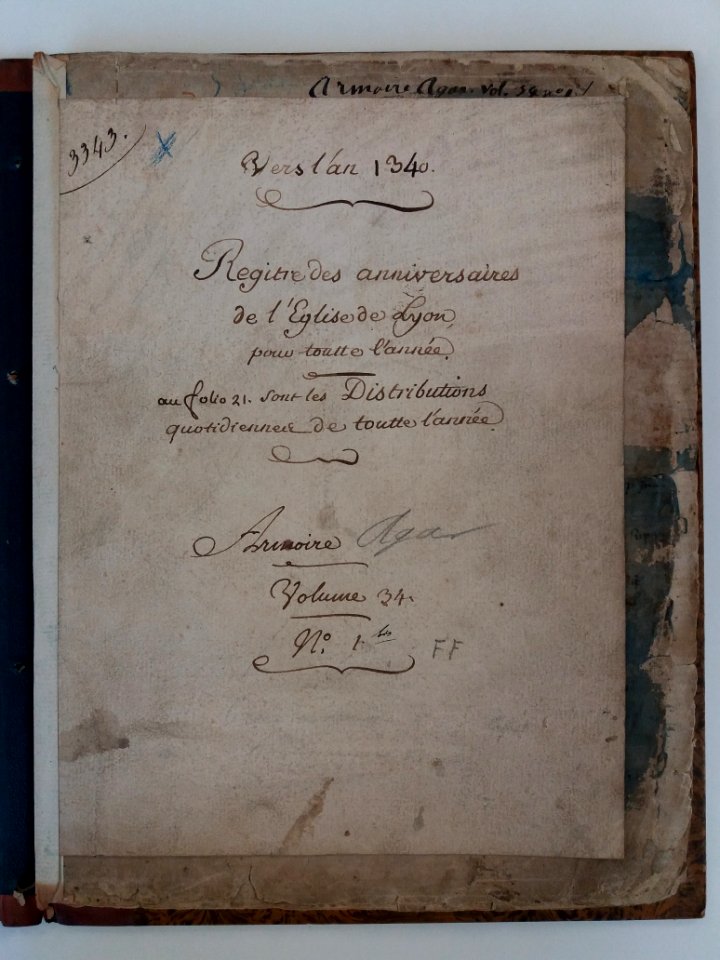 Armoire Agar. Vol. 34 no. 1
3343.
Vers l'an 1340.
Regitre des anniversaires
de l'Eglise de Lyon,
pour toutte l'année.
au folio 21. sont les Distributions
quotidiennes de toutte l'année.
Armoire Agar
Volume 34.
N.° 1.
FF